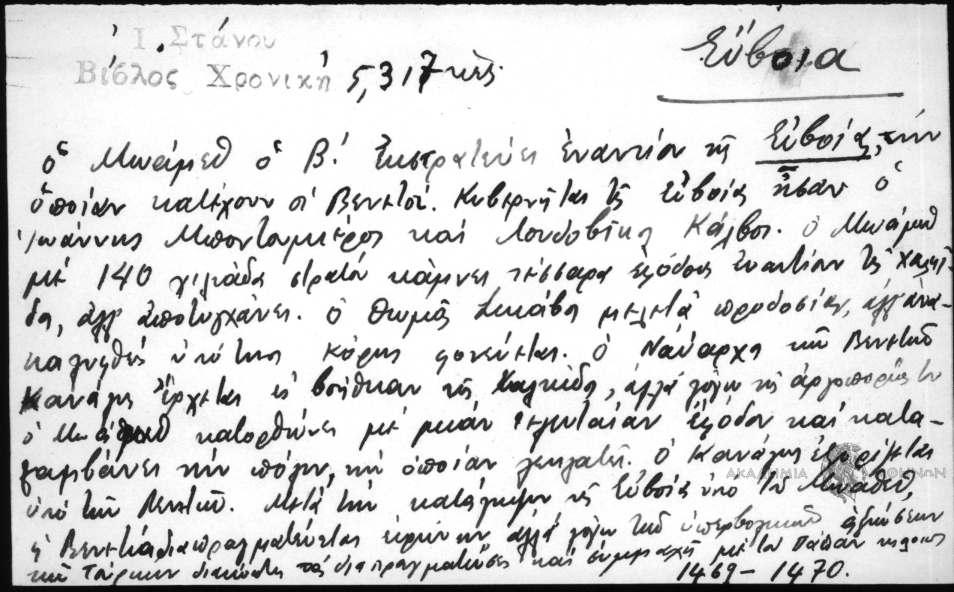 Ἰ. Στάνου
Βίβλος Χρονικὴ 5, 317 κἑξ.
Εὔβοια
ὁ Μωάμεθ ὁ Β! ἐκστρατεύει ἐναντίον τῆς Εὐβοίας, τὴν
ὁποίαν κατέχουν οἱ Βενετοί. Κυβερνῆται τῆς Εὐβοίας ἦσαν ὁ
Ἰωάννης Μπονταμιέρος καὶ Λουδοβίκος Κάλβος. ὁ Μωάμεθ
μὲ 140 χιλιάδα στρατὸν κάμνει τέσσαρα ἐξόδους ἐναντίον τῆς Χαλκί-
δα, ἀλλ' ἀποτυγχάνει. Ὁ Θωμᾶς μελετᾶ προδοσίαν, ἀλλ' ἀνα-
καλυφθεὶς ὑπό της κόρης φονεύεται. Ὁ Ναύαρχος τῶν Βενετῶν
Κανάλης ἔρχεται εἰς βοήθειαν τῆς Χαλκίδος, ἀλλὰ λόγω τῆς ἀργοπορίας του
ὁ Μωάμεθ κατορθώνει μὲ μιὰν τελευταίαν ἔξοδον καὶ κατα-
λαμβάνει τὴν πόλιν, τὴν ὁποίαν λεηλατεῖ. Ὁ Κανάλης ἐξορίζεται
ὑπὸ τῶν Βενετῶν. Μετὰ τὴν κατάληψιν τῆς Εὐβοίας ὑπὸ τοῦ Μωάμεθ,
ἡ Βενετία διαπραγματεύεται εἰρήνην, ἀλλὰ λόγω τῶν ὑπερβολικῶν ἀξιώσεων
τῶν Τούρκων διακόπτει τὰς διαπραγματεύσεις καὶ συμμαχεῖ μὲ τὸν Πάπαν
1469 – 1470.
ΑΚΑΔΗΜΙΑ ΑΘΗΝΩΝ